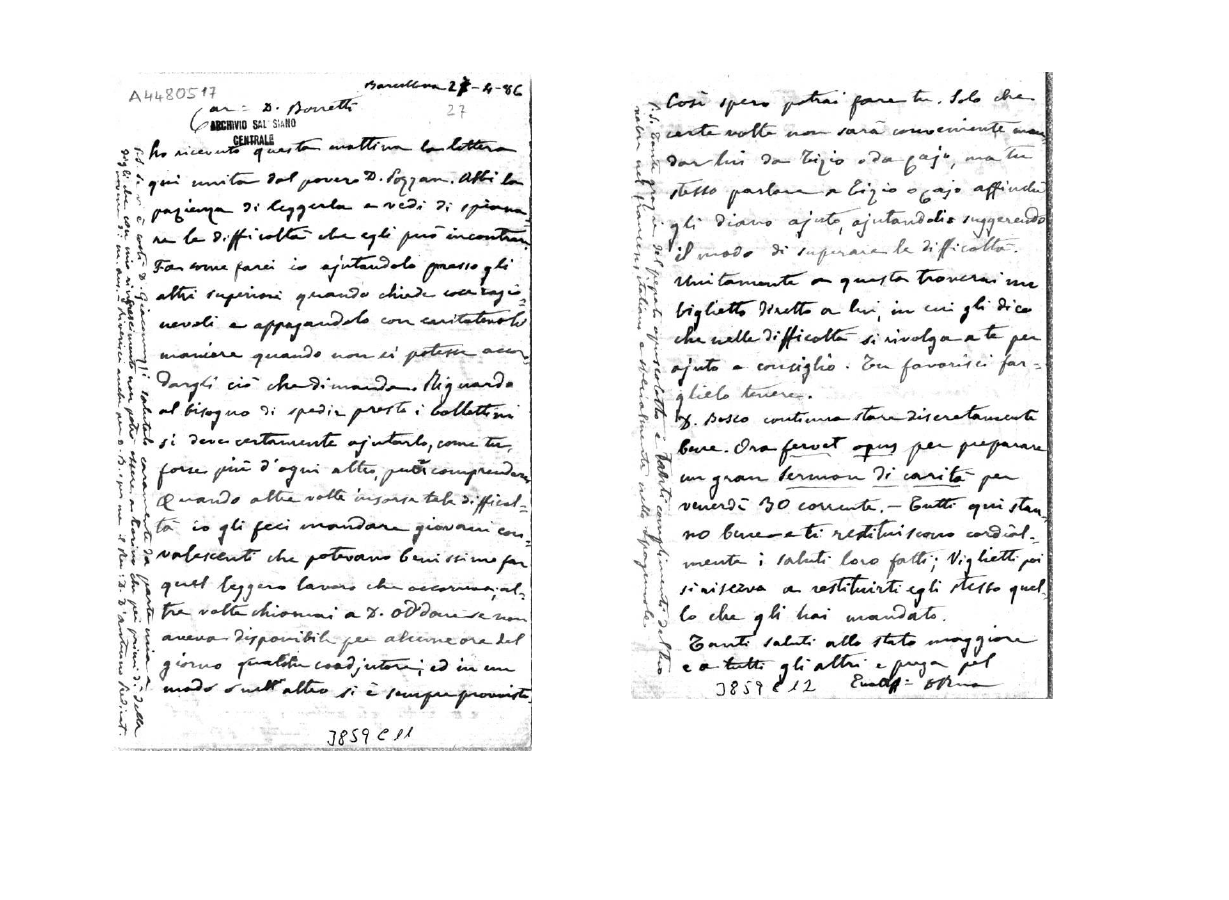 A4480517
Barcellona 27-4-86
Car.mo D. Bonetti
27
ARCHIVIO SALESIANO
CENTRALE
ho ricevuto questa mattina la lettera
qui unita dal povero D. Pozzan. Abbi la
pazienza di leggerla e vedi di spiana
re le difficoltà che egli può incontrar.
Fa come farei io ajutandolo presso gli
altri superiori quando chiede cose ragio-
nevoli e appagandolo con caritatevoli
maniere quando non si potesse accor
dargli ciò che dimanda. Riguardo
al bisogno di spedir presto i bollettini
si deve certamente ajutarlo, come tu,
forse più d'ogni altro, puoi comprendere
Quando altre volte insorse tale difficol-
tà io gli feci mandare giovani con-
valescenti che potevano benissimo far
quel leggero lavoro che occorreva; al-
tre volte chiamai a D. Oddone se non
aveva disponibile per alcune ore del
giorno qualche coadjutore; ed in un
modo o nell'altro si è sempre provvisto.
3859 C 11
P.S. Se vi è costì D. Giacomo gli salutalo caramente da parte mia e
digli che con mio rincrescimento non potrò essere a Torino che pei primi di della
Così spero potrai fare tu. Solo che
certe volte non sarà conveniente man
dar lui da Tizio o da Cajo, ma tu
stesso parlare a Tizio o Cajo affinché
gli diano ajuto, ajutandolo suggerendo
il modo di superare le difficoltà.
Unitamente a questa troverai un
biglietto diretto a lui, in cui gli dico
che nelle difficoltà si rivolga a te per
ajuto e consiglio. Tu favorisci far-
glielo tenere.
D. Bosco continua stare discretamente
bene. Ora fervet opus per preparare
un gran Sermon di carità per
venerdì 30 corrente. - Tutti qui stan-
no bene e ti restituiscono cordial-
mente i saluti loro fatti; Viglietti poi
si riserva a restituirti egli stesso quel-
lo che gli hai mandato.
Tanti saluti allo stato maggiore
e a tutti gli altri e prega pel
3859 C 12
P.S. Tante grazie del
nelle francesi, italiane e specialmente nella Spagnuola.